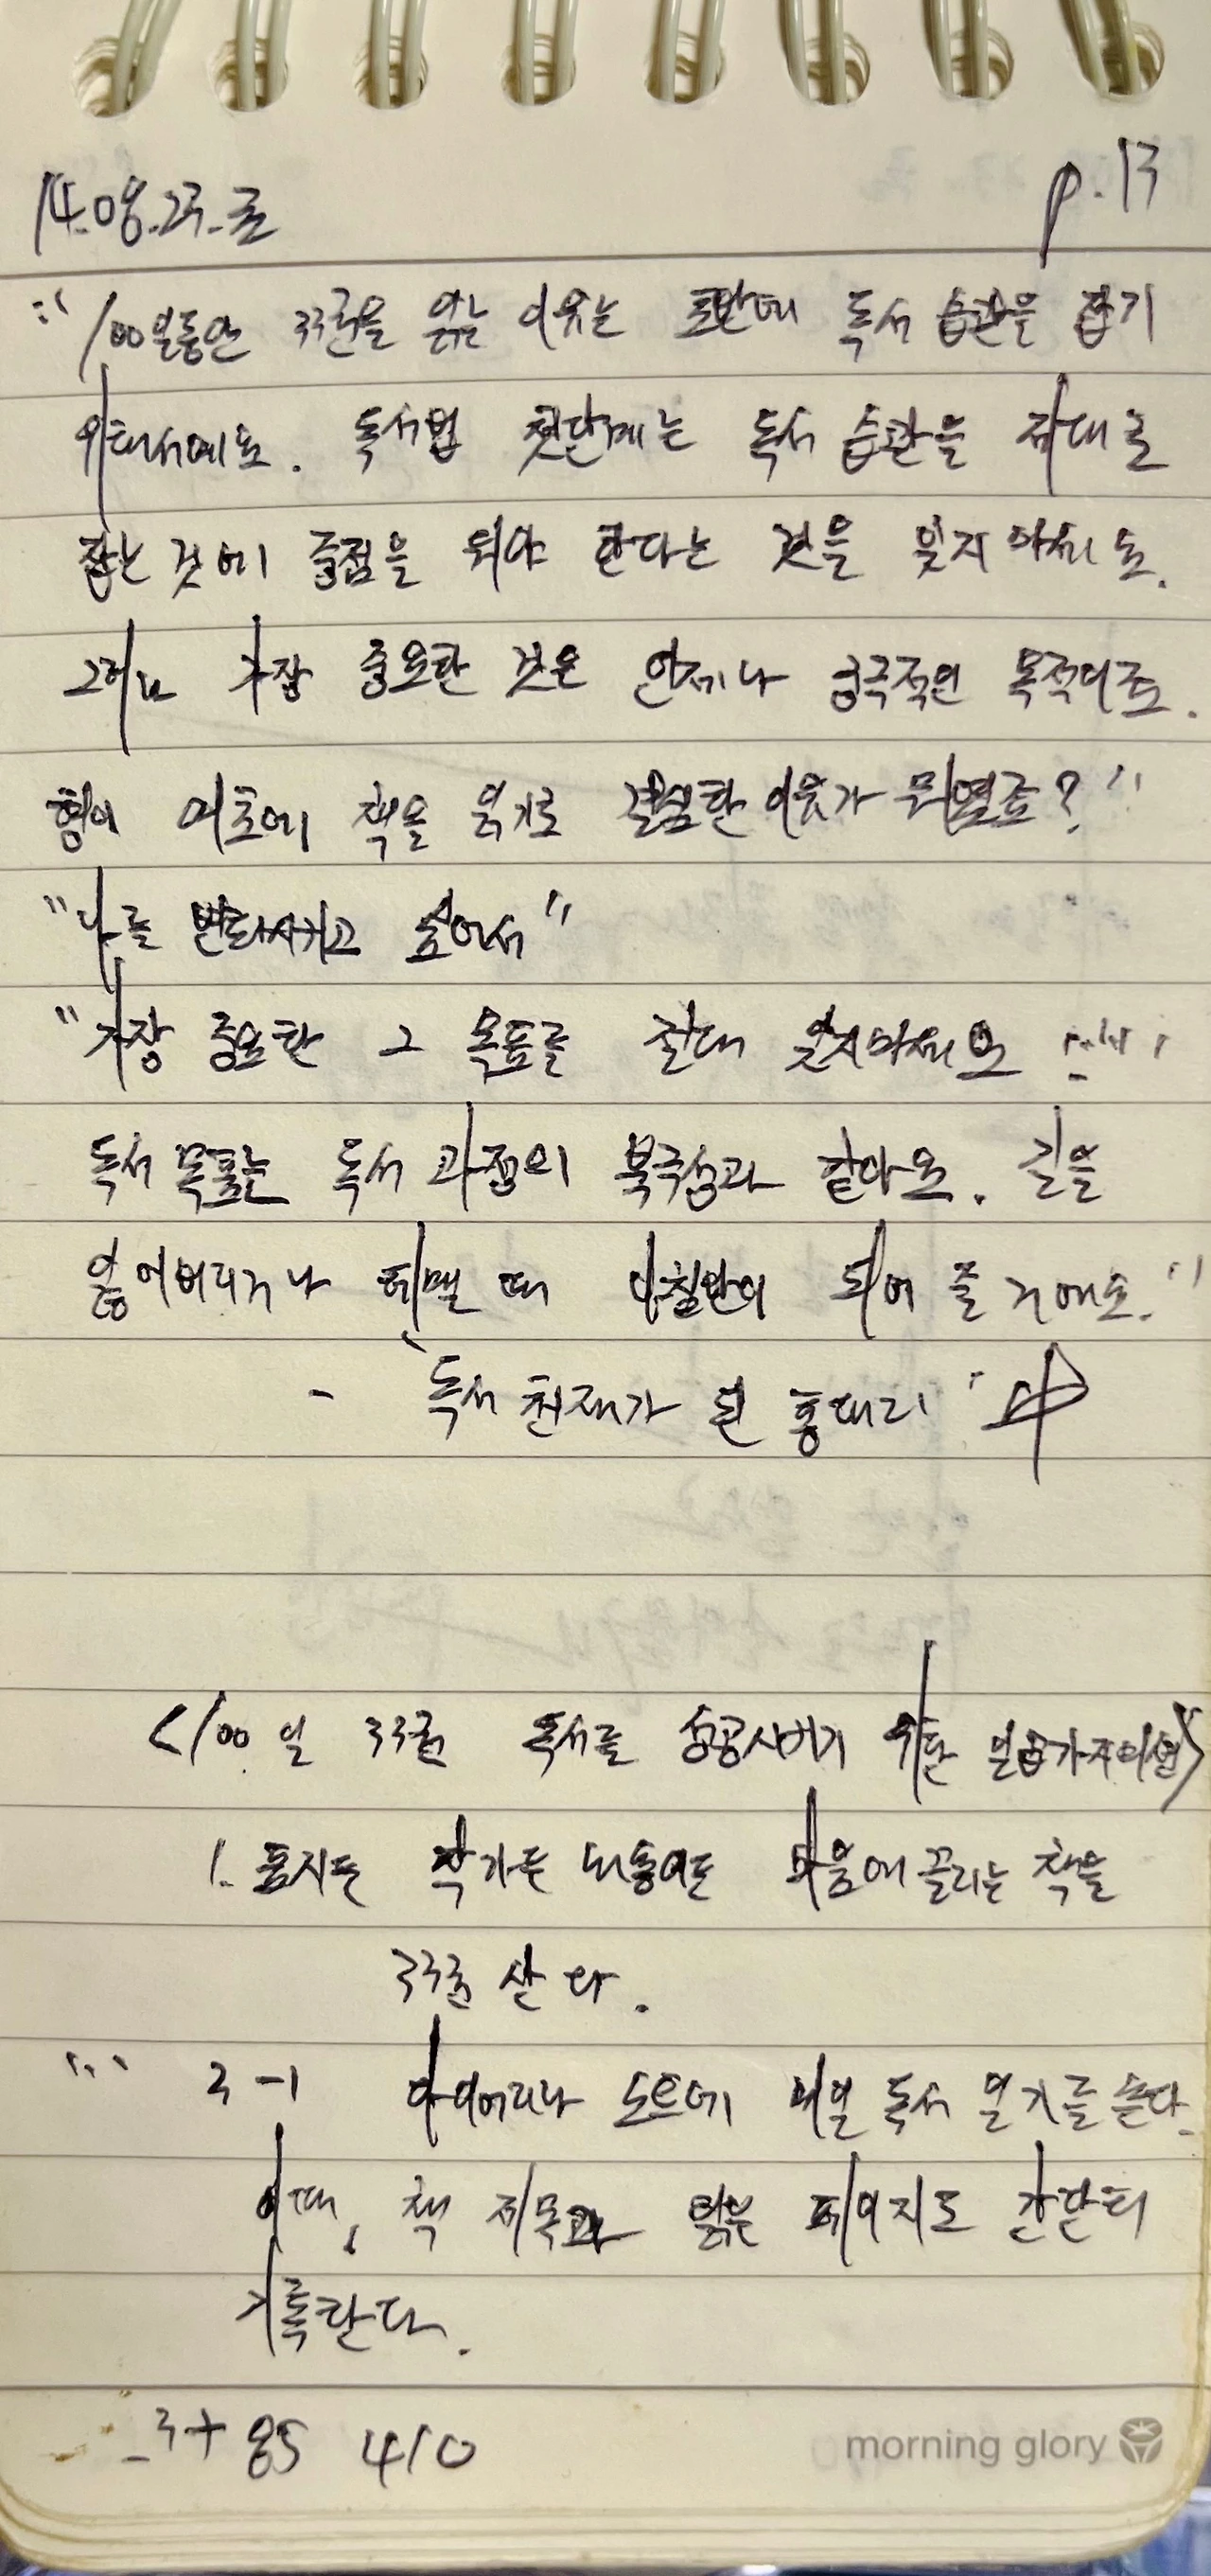 14.08.23.토 p.13
"100일동안 33권을 읽는 이유는 초반에 독서 습관을 잡기
위해서예요. 독서법 첫단계는 독서 습관을 제대로
잡는 것에 중점을 둬야 한다는 것을 잊지 마세요.
그리고 가장 중요한 것은 언제나 궁극적인 목적이죠.
형이 애초에 책을 읽기로 결심한 이유가 뭐였죠?"
"나를 변화시키고 싶어서"
"가장 중요한 그 목표를 절대 잊지마세요
독서 목표는 독서 과정의 북극성과 같아요. 길을
잃어버리거나 헤맬 때 나침반이 되어 줄 거예요."
- '독서 천재가 된 홍대리' 中
<100일 33권 독서를 성공시키기 위한 일곱가지비법>
1. 표지든 작가든 내용이든 마음에 끌리는 책을
33권 산다.
2-1 다이어리나 노트에 매일 독서 일기를 쓴다.
이때, 책 제목과 읽은 페이지도 간단히
기록한다.
85 410
morning glory